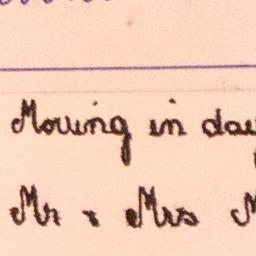 Moving in day
Mr & Mrs M